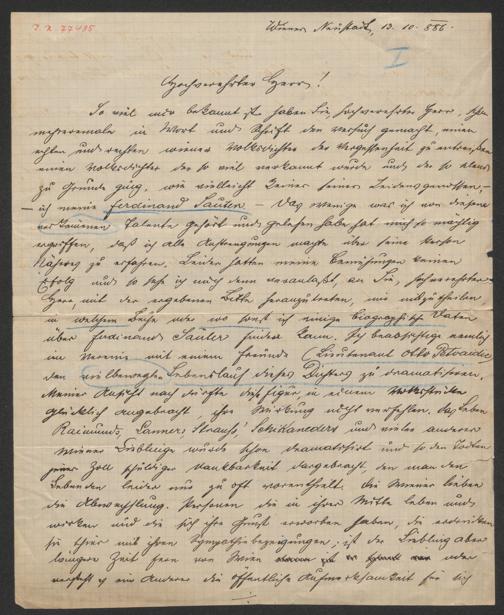 I. N. 77495
Wiener Neustadt, 13. 10. 886.
I
Hochverehrter Herr!
So viel mir bekannt ist haben Sie, hochverehrter Herr, schon
mehreremale in Wort und Schrift den Versuch gemacht, einen
echten und rechten wiener Volksdichter der Vergessenheit zu entreißen
einen Volksdichter der so viel verkannt wurde und der so elend
zu Grunde ging, wie vielleicht keiner seiner Leidensgenossen, –
– ich meine Ferdinand Sauter – Das wenige was ich von diesem
verkommenen Talente gehört und gelesen habe hat mich so mächtig
ergriffen, daß ich alle Anstrengungen machte über seine Person
Näheres zu erfahren. Leider hatten meine Bemühungen keinen
Erfolg und so sehe ich mich denn veranlaßt, an Sie, hochverehrter
Herr, mit der ergebenen Bitte heranzutreten, mir mitzutheilen
in welchem Buche oder wo sonst ich einige biographische Daten
über Ferdinand Sauter finden kann. Ich beabsichtige nemlich
im Verein mit einem Freunde (Lieutenant Otto
den vielbewegten Lebenslauf dieses Dichters zu dramatisiren.
Meiner Ansicht nach dürfte diese Figur in einem Volksstücke
glücklich angebracht, ihre Wirkung nicht verfehlen. Das Leben
Raimunds, Lanner, Strauss, Schikaneders und vieler anderer
Wiener Lieblinge wurde schon dramatisirt und so den Todten
jener Zoll schuldiger Dankbarkeit dargebracht, den man den
Lebenden leider nur zu oft vorenthielt. Die Wiener lieben
die Abwechslung. Personen die in ihrer Mitte leben und
wirken und die sich ihre Gunst erworben haben, die
sie schier mit ihren Sympathiebezeigungen, ist der Liebling aber
längere Zeit fern von Wien oder
versteht es ein Anderer die öffentliche Aufmerksamkeit für sich